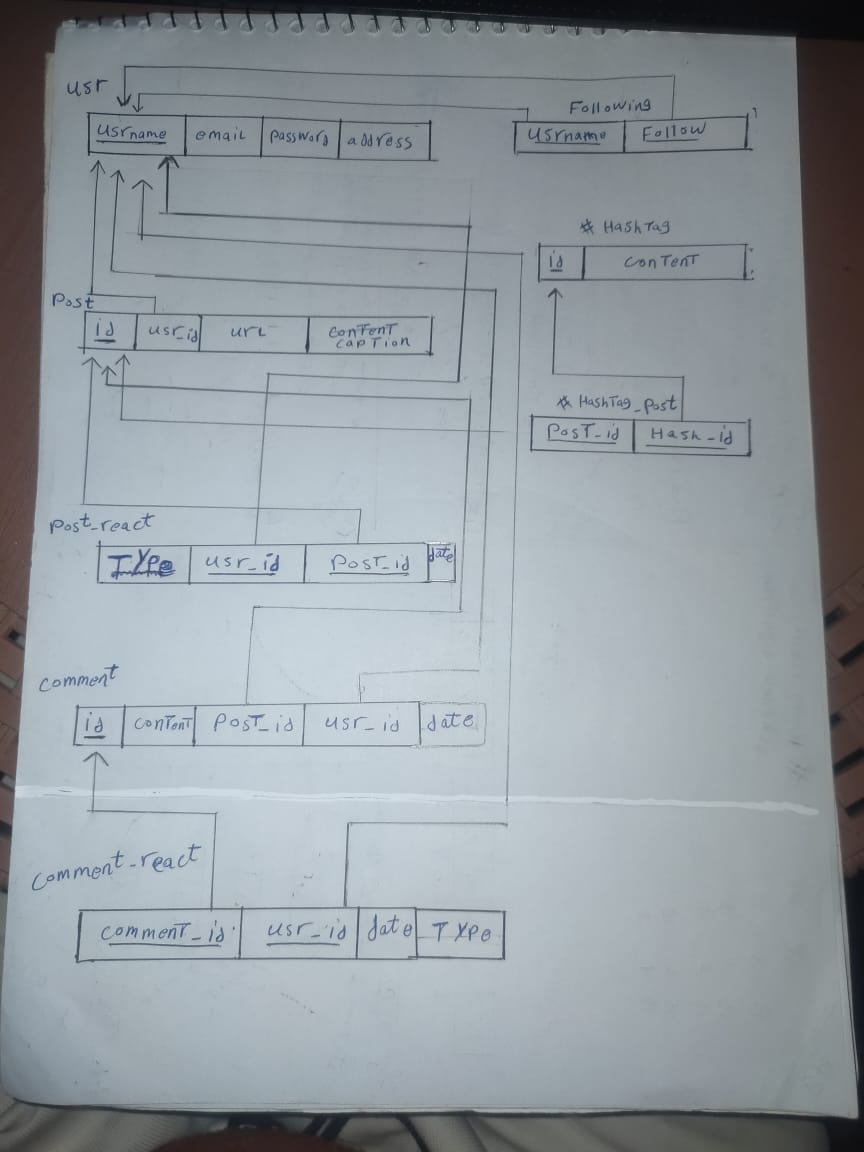 usr
usrname email password address
Following
usrname Follow
# HashTag
id content
Post
id usr_id url content caption
# HashTag_Post
Post_id Hash_id
Post_react
Type usr_id Post_id date
comment
id content Post_id usr_id date
comment_react
comment_id usr_id date Type